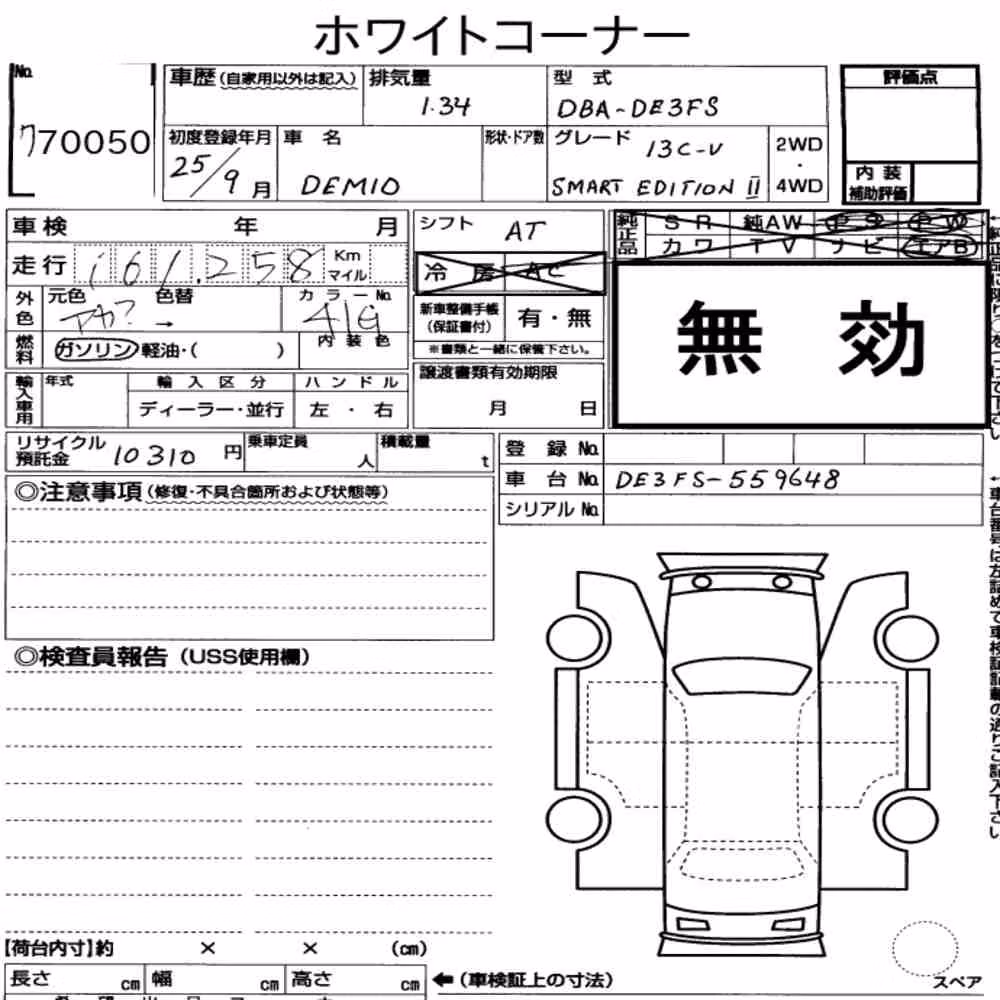 ホワイトコーナー
No.
ワ70050
車歴(自家用以外は記入)
排気量
1.34
型 式
DBA-DE3FS
評価点
初度登録年月
25/9月
車 名
DEMIO
形状・ドア数
グレード 13C-V
SMART EDITION II
2WD
・
4WD
内装
補助評価
車検 年 月
走行 161,258 Km
マイル
外色
元色 アカ? 色替 →
カラーNo.
内装色
燃料
ガソリン・軽油・( )
シフト AT
冷 房 AC
新車整備手帳
(保証書付)
有・無
※書類と一緒に保管下さい。
譲渡書類有効期限
月 日
純正品
SR 純AW PS PW
カワ TV ナビ エアB
無効
輸入車用
年式
輸入区分
ディーラー・並行
ハンドル
左・右
リサイクル
預託金
10310円
乗車定員
人
積載量
t
登録No.
車台No. DE3FS-559648
シリアルNo.
◎注意事項(修復・不具合箇所および状態等)
◎検査員報告(USS使用欄)
【荷台内寸】約 × × (cm)
長さ cm 幅 cm 高さ cm ←(車検証上の寸法)
スペア
←車台番号は左詰めで車検証記載の通りご記入下さい